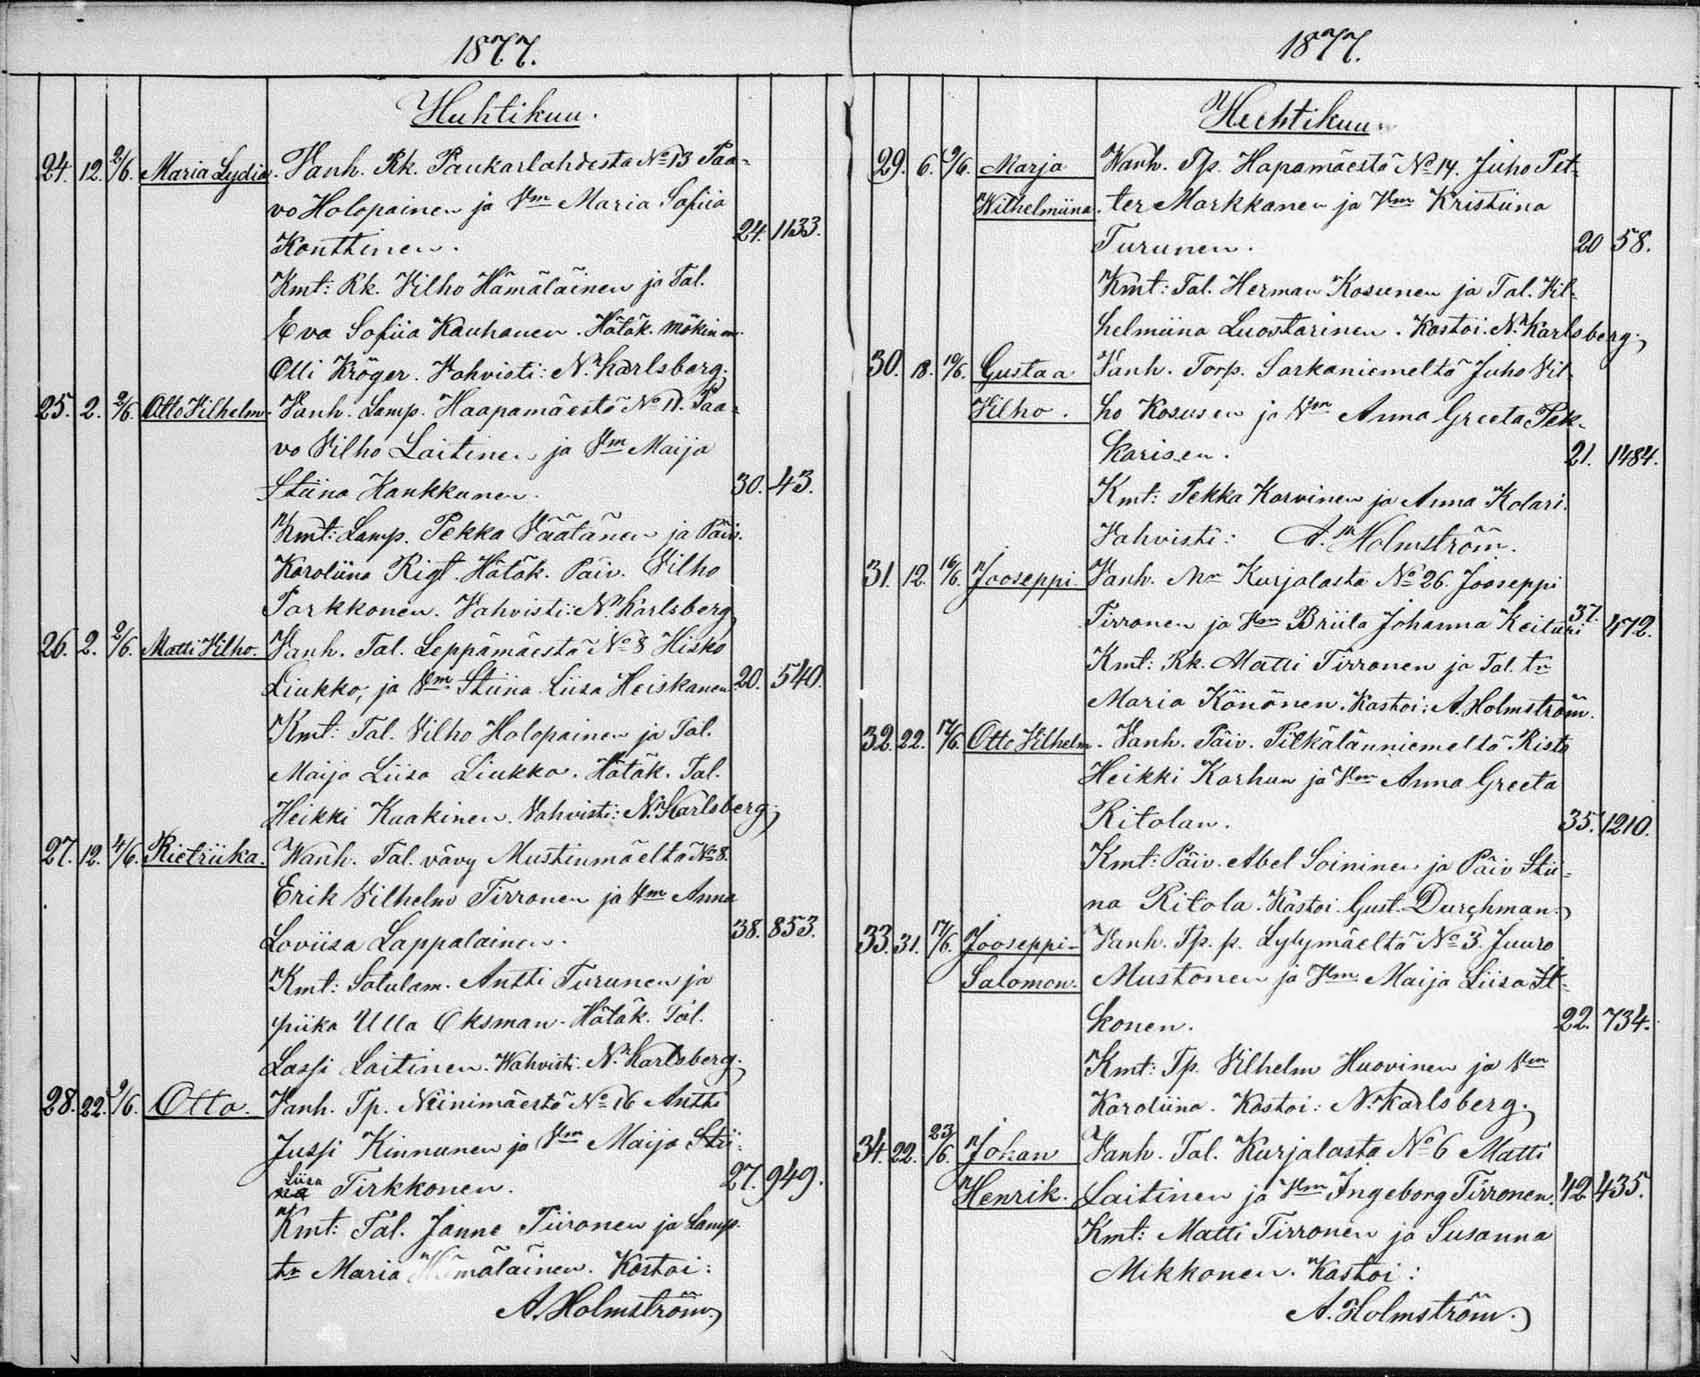 1877.
Huhtikuu.
24. 12. 2/6. Maria Lydia. Vanh. Rk. Paukarlahdesta No 13 Paa-
vo Holopainen ja Vm Maria Sofiia
Konttinen. 24. 1133.
Kmt: Rk. Vilho Hämäläinen ja Tal.
Eva Sofiia Kauhanen. Hätäk. mökin m.
Olli Kröger. Vahvisti: N. Karlsberg.
25. 2. 2/6. Otto Vilhelm. Vanh. Lamp. Haapamäestä No 11. Paa-
vo Vilho Laitinen ja Vm Maija
Stiina Kankkunen. 30. 43.
Kmt: Lamp. Pekka Väätänen ja Päiv.
Karoliina Rigt. Hätäk. Päiv. Vilho
Parkkonen. Vahvisti: N. Karlsberg
26. 2. 2/6. Matti Vilho. Vanh. Tal. Leppämäestä No 8 Hisko
Liukko, ja Vm Stiina Liisa Heiskanen. 20. 540.
Kmt: Tal. Vilho Holopainen ja Tal.
Maija Liisa Liukko. Hätäk. Tal.
Heikki Kaakinen. Vahvisti: N. Karlsberg.
27. 12. 4/6. Rietriika. Wanh. Tal. vävy Mustinmäeltä No 8.
Erik Vilhelm Tirronen ja Vm Anna
Loviisa Lappalainen. 38. 853.
Kmt: Satulam. Antti Turunen ja
piika Ulla Oksman. Hätäk. Tal.
Lassi Laitinen. Wahvisti: N. Karlsberg.
28. 22. 9/6. Otto. Vanh. Tp. Niinimäestä No 16 Antti
Jussi Kinnunen ja Vm Maija Stii-
Liisa
na Tirkkonen. 27. 949.
Kmt: Tal. Janne Tiironen ja Lamp.
tr Maria Hämäläinen. Kastoi:
A. Holmström.
1877.
Huhtikuu.
29. 6. 9/6. Marja Wanh. Tp. Hapamäestä No 14. Juho Pet-
Wilhelmiina. ter Markkanen ja Vm Kristiina
Turunen. 20 58.
Kmt: Tal. Herman Kosunen ja Tal. Vil-
helmiina Luostarinen. Kastoi. N. Karlsberg.
30. 18. 10/6. Gustaa Vanh. Torp. Sarkaniemeltä Juho Vil-
Vilho. ho Kosusen ja Vm Anna Greeta Pek-
karisen. 21. 1484.
Kmt: Pekka Korvinen ja Anna Kolari.
Vahvisti: A. Holmström.
31. 12. 16/6. Jooseppi Vanh. Mm Kurjalasta No 26. Jooseppi
Tirronen ja Vm Briita Johanna Keituri 37. 472.
Kmt: Rk. Matti Tirronen ja Tal. tr
Maria Könönen. Kastoi: A. Holmström.
32. 22. 17/6. Otto Vilhelm. Vanh. Päiv. Pitkälänniemeltä Risto
Heikki Karhun ja Vm Anna Greeta
Ritolan. 35. 1210.
Kmt: Päiv. Abel Soininen ja Päiv Stii-
na Ritola. Kastoi Gust. Durchman.
33. 31. 17/6. Jooseppi- Vanh. Tp. p. Lylymäeltä No 3. Juuro
Salomon. Mustonen ja Vm Maija Liisa It-
konen. 22. 734.
Kmt: Tp. Vilhelm Huovinen ja Vm
Karoliina. Kastoi: N. Karlsberg.
34. 22. 23/6. Johan Vanh. Tal. Kurjalasta No 6 Matti
Henrik. Laitinen ja Vm Ingeborg Tirronen. 42 435.
Kmt: Matti Tirronen ja Susanna
Mikkonen. Kastoi:
A. Holmström.